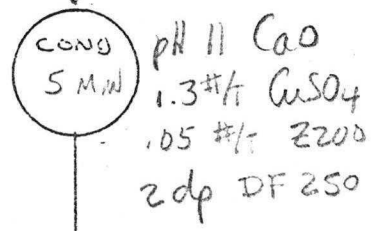 COND
5 MIN
pH 11 CaO
1.3 #/T CuSO4
.05 #/T Z200
2 dp DF 250